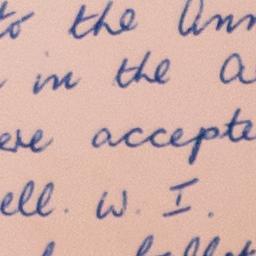 to the Ann
in the a
ere accepte
ell. W. I.